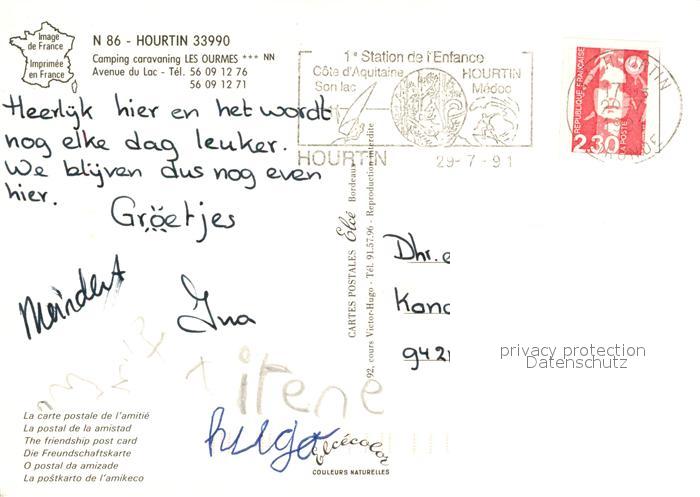 Image
de France
Imprimée
en France
N 86 - HOURTIN 33990
Camping caravaning LES OURMES *** NN
Avenue du Lac - Tél. 56 09 12 76
56 09 12 71
1e Station de l'Enfance
Côte d'Aquitaine
Son lac
HOURTIN
Médoc
HOURTIN
29-7-91
HOURTIN
GIRONDE
REPUBLIQUE FRANÇAISE
LA POSTE
2,30
Heerlijk hier en het wordt
nog elke dag leuker.
We blijven dus nog even
hier.
Groetjes
Meindert
Ina
irene
hugo
CARTES POSTALES Elcé Bordeaux
92, cours Victor-Hugo - Tél. 91.57.96 - Reproduction interdite
Dhr. e
Kana
942
privacy protection
Datenschutz
La carte postale de l'amitié
La postal de la amistad
The friendship post card
Die Freundschaftskarte
O postal da amizade
La poŝtkarto de l'amikeco
elcécolor
COULEURS NATURELLES